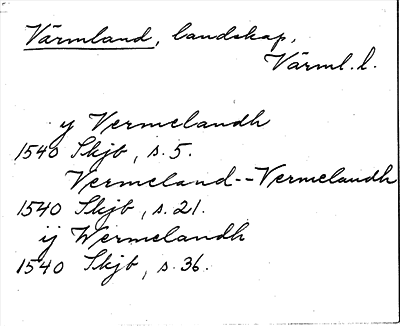 Värmland, landskap,
Värml. l.
y Vermelandh
1540 Skjb, s. 5.
Vermeland--Vermelandh
1540 Skjb, s. 21.
ij Wermelandh
1540 Skjb, s. 36.